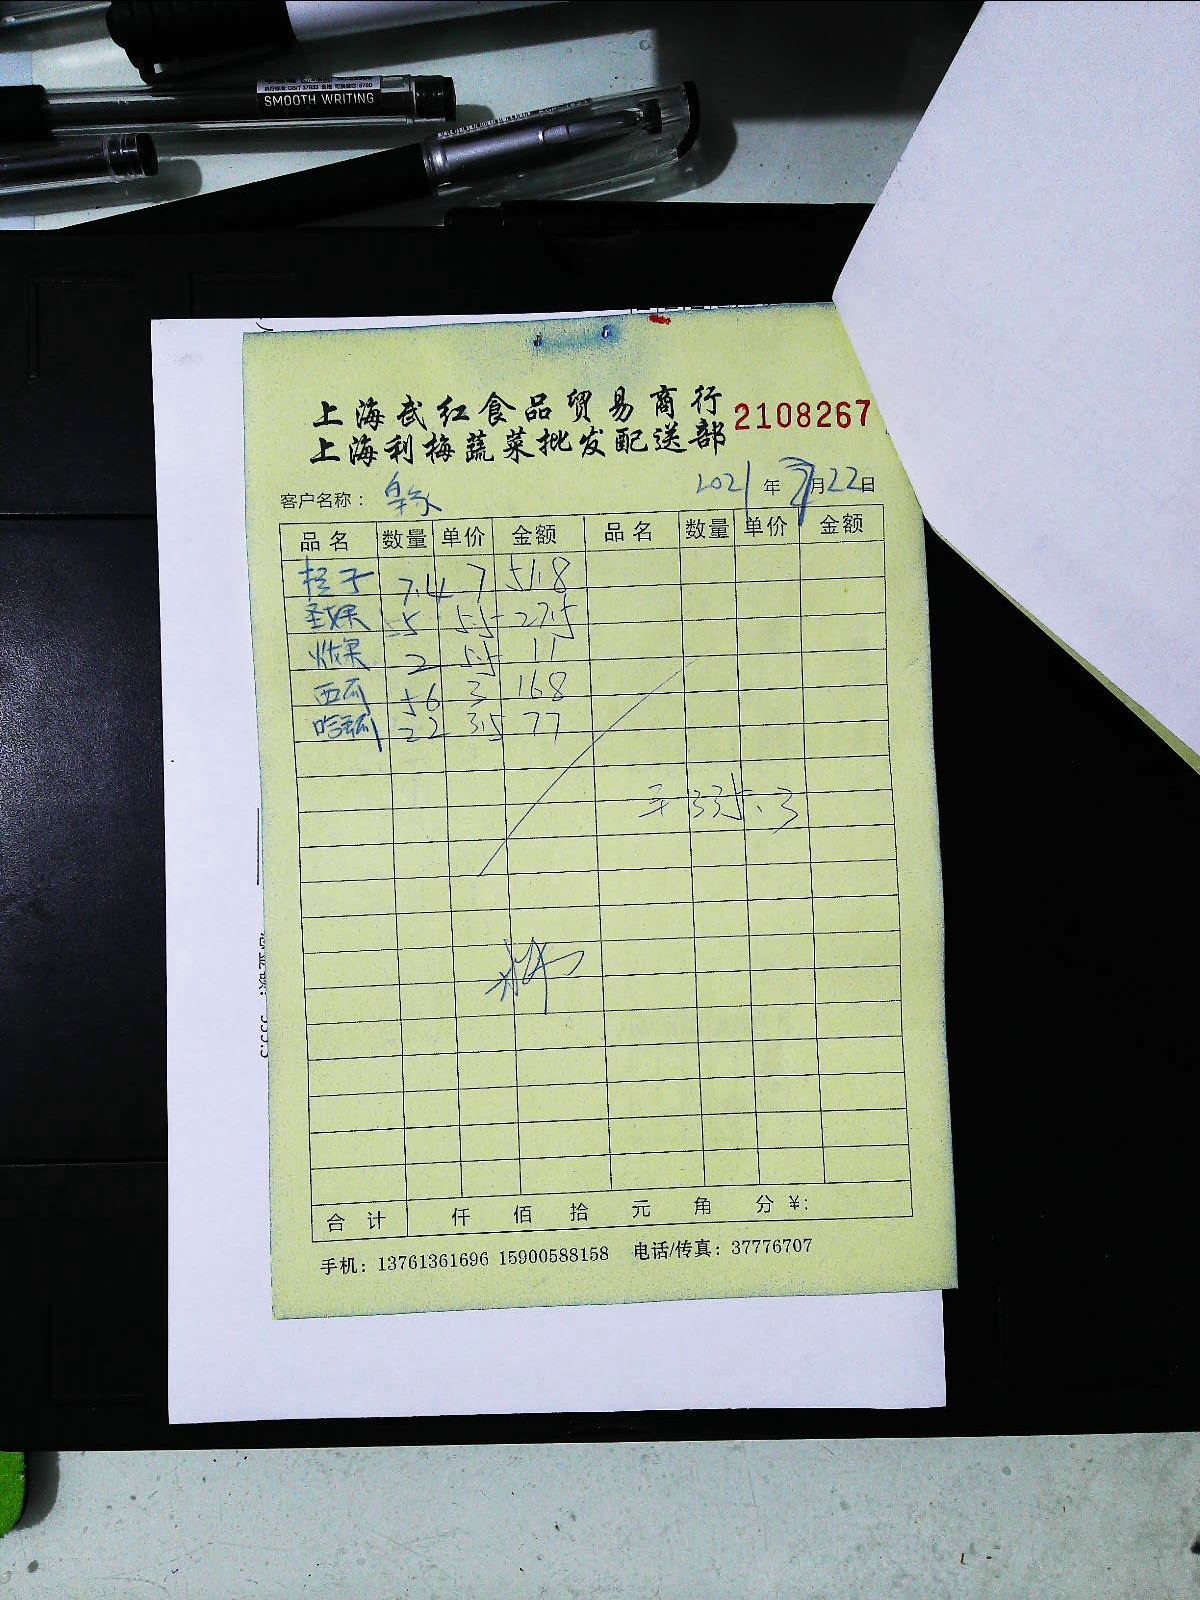 SMOOTH WRITING
上海武红食品贸易商行
上海利梅蔬菜批发配送部
2108267
客户名称：
2021年7月22日
品名 数量 单价 金额 品名 数量 单价 金额
橙子 7.4 7 51.8
圣女果 5 5.5 27.5
火龙果 2 5.5 11
西瓜 56 3 168
哈密瓜 22 3.5 77
335.3
合计 仟 佰 拾 元 角 分 ¥:
手机：13761361696 15900588158 电话/传真：37776707